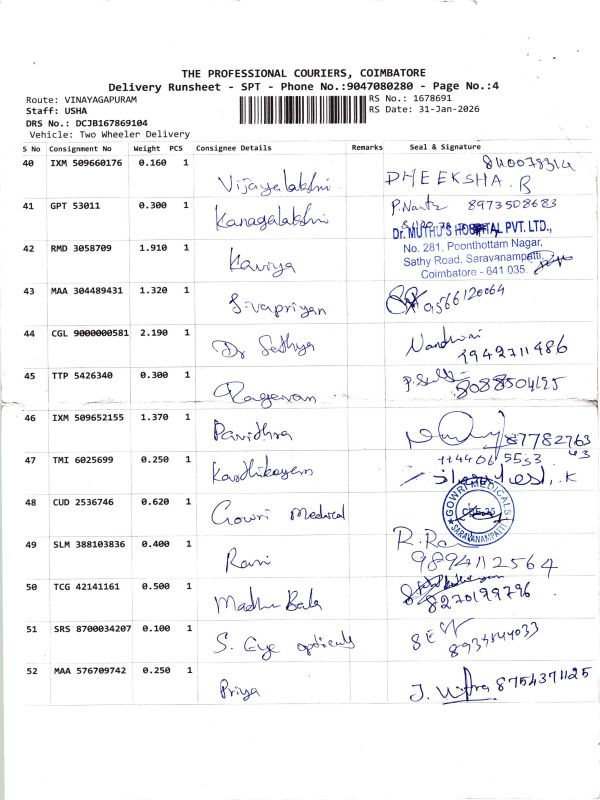 THE PROFESSIONAL COURIERS, COIMBATORE
Delivery Runsheet - SPT - Phone No.:9047080280 - Page No.:4
Route: VINAYAGAPURAM
Staff: USHA
DRS No.: DCJB167869104
Vehicle: Two Wheeler Delivery
RS No.: 1678691
RS Date: 31-Jan-2026
S No Consignment No Weight PCS Consignee Details Remarks Seal & Signature
40 IXM 509660176 0.160 1 Vijayalakshmi DHEEKSHA. B
41 GPT 53011 0.300 1 Kanagalakshmi 8973508683
42 RMD 3058709 1.910 1 Kaviya
Dr. MUTHU'S HOSPITAL PVT. LTD.,
No. 281, Poonthottam Nagar,
Sathy Road, Saravanampatti,
Coimbatore - 641 035.
43 MAA 304489431 1.320 1 Sivapriyan 9566120064
44 CGL 9000000581 2.190 1 Dr Sathya 9942711486
45 TTP 5426340 0.300 1 Ragavan 8088504195
46 IXM 509652155 1.370 1 Pavithra
47 TMI 6025699 0.250 1 Karthikayeni
48 CUD 2536746 0.620 1 Gowri Medical
GOWRI MEDICALS
CBE-35
SARAVANAMPATTI
49 SLM 388103836 0.400 1 Ravi 9894112564
50 TCG 42141161 0.500 1 Madhu Bala 8270199796
51 SRS 8700034207 0.100 1 S. Eye opticals
52 MAA 576709742 0.250 1 Priya 8754371125